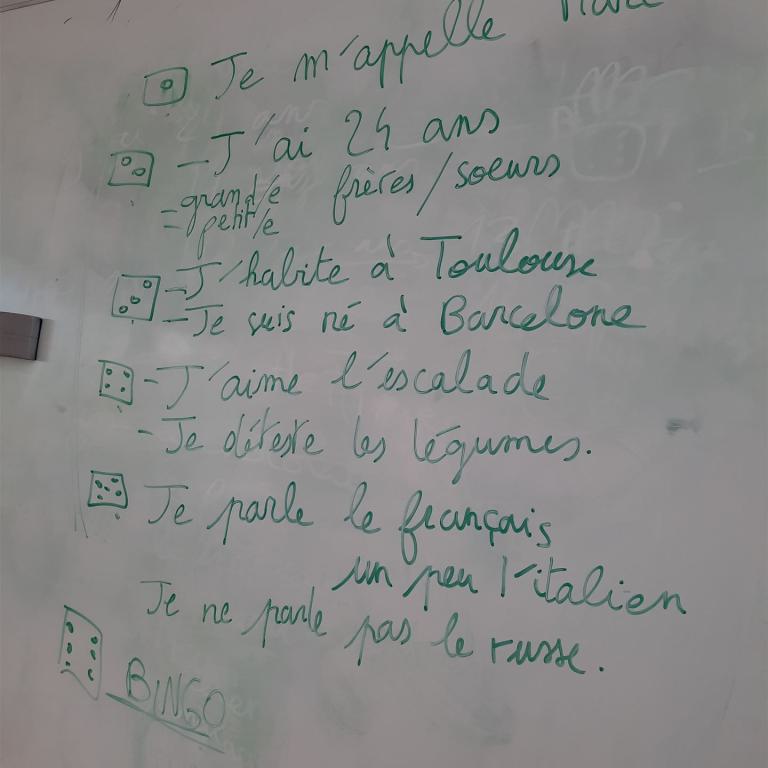 Je m'appelle
- J'ai 24 ans
= grand/e frères/soeurs
= petit/e
- J'habite à Toulouse
- Je suis né à Barcelone
- J'aime l'escalade
- Je déteste les légumes.
Je parle le français
un peu l'italien
Je ne parle pas le russe.
BINGO